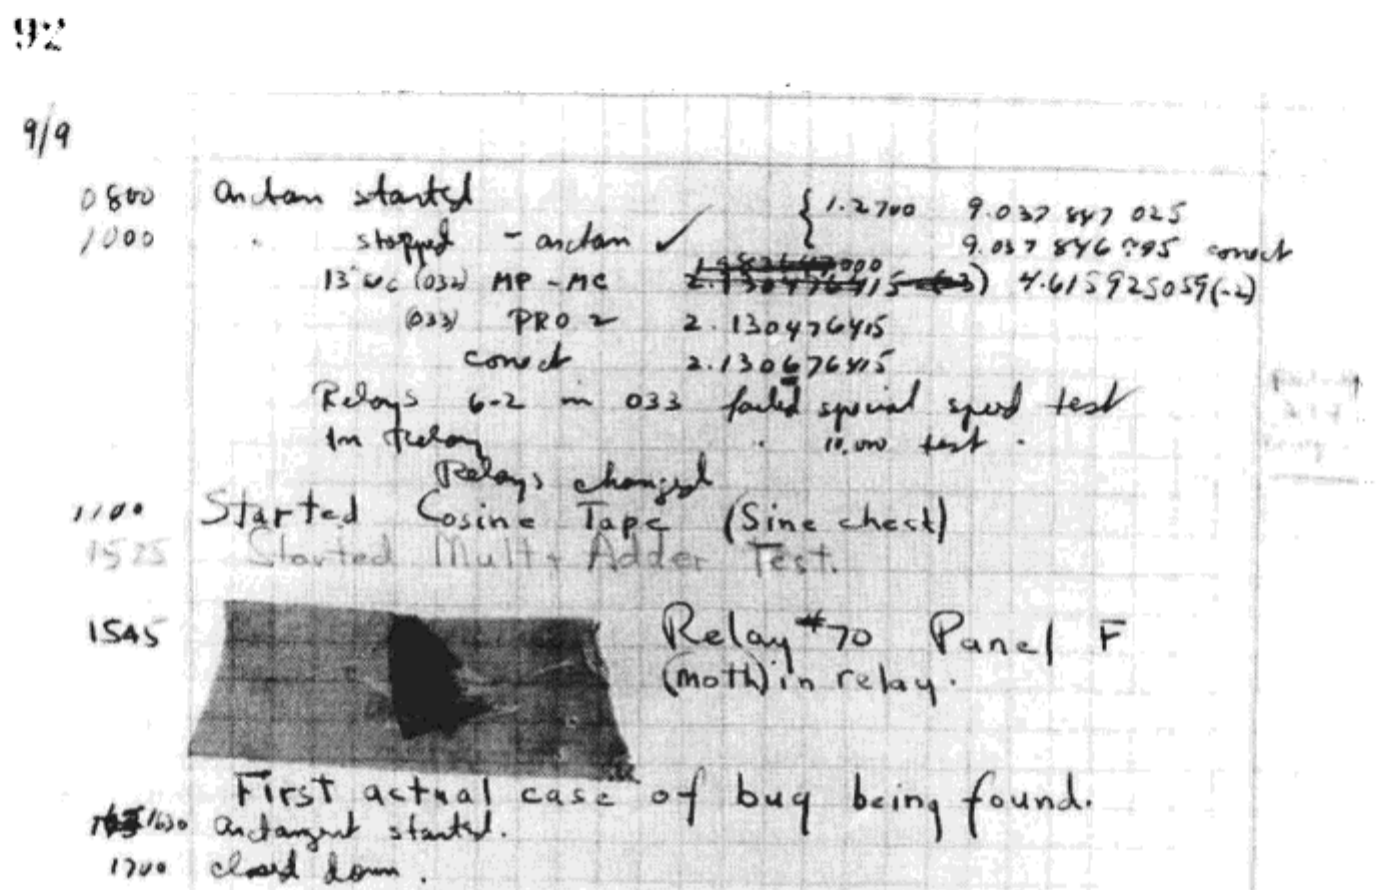 92
9/9
0800 Antan started { 1.2700 9.037 847 025
1000 " stopped - antan ✓ 9.037 846 795 correct
13"uc (032) MP - MC 2.130476415 (-3) 4.615925059(-2)
(033) PRO 2 2.130476415
correct 2.130676415
Relays 6-2 in 033 failed special speed test
In Relay " 10.000 test .
Relays changed
1100 Started Cosine Tape (Sine check)
1525 Started Mult + Adder Test.
1545 Relay #70 Panel F
(moth) in relay.
First actual case of bug being found.
1630 Antangent started.
1700 closed down.